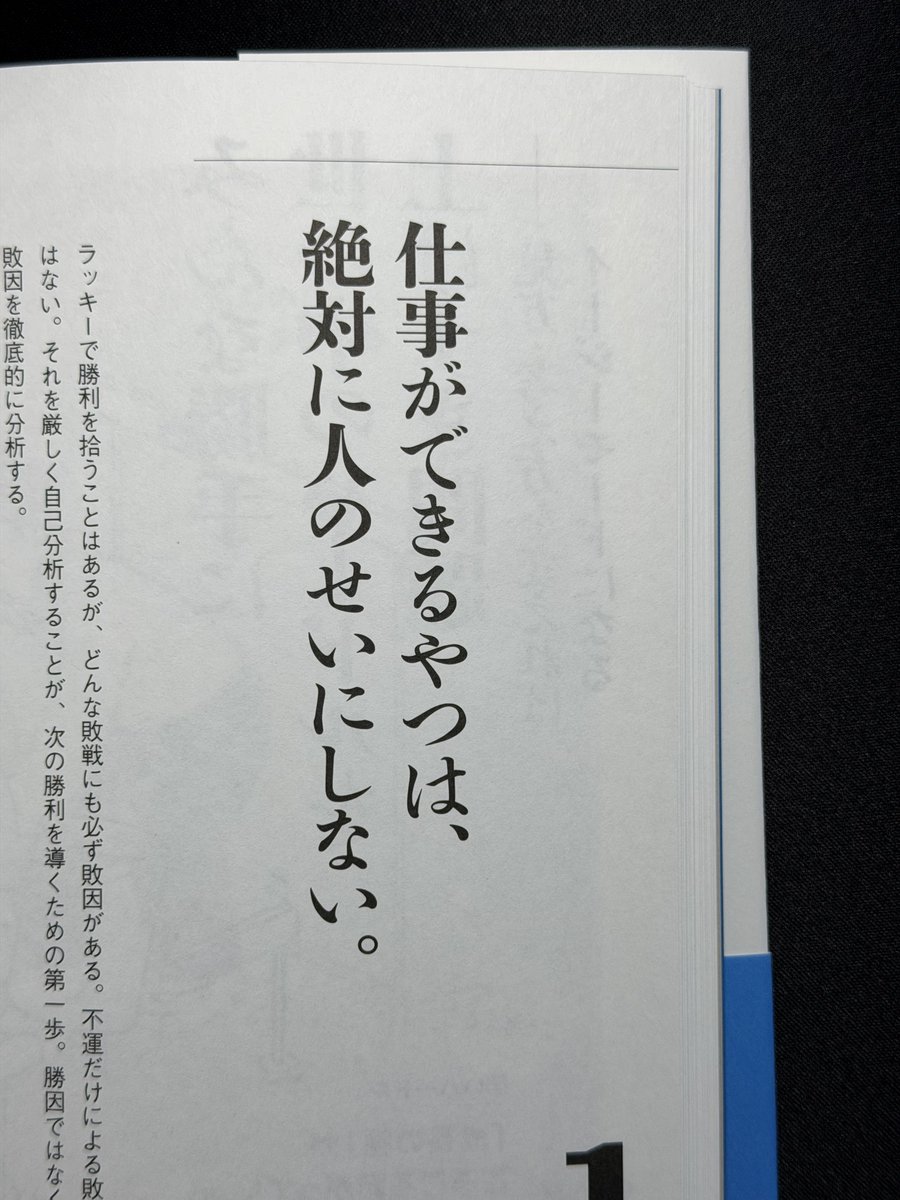 仕事ができるやつは、
絶対に人のせいにしない。
ラッキーで勝利を拾うことはあるが、どんな敗戦にも必ず敗因がある。不運だけによる敗
はない。それを厳しく自己分析することが、次の勝利を導くための第一歩。勝因ではなく
敗因を徹底的に分析する。
1